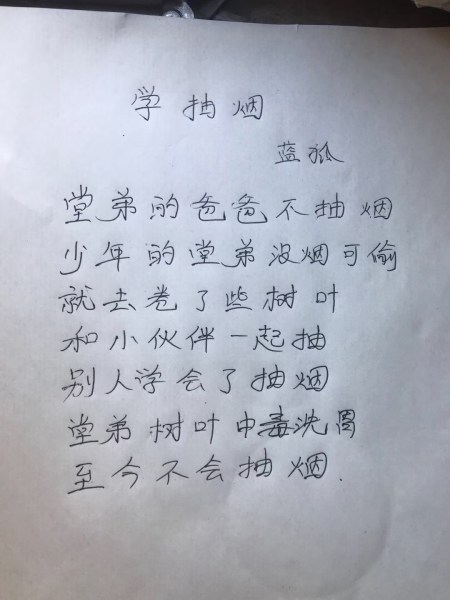 学抽烟
蓝狐
堂弟的爸爸不抽烟
少年的堂弟没烟可偷
就去卷了些树叶
和小伙伴一起抽
别人学会了抽烟
堂弟树叶中毒洗胃
至今不会抽烟.